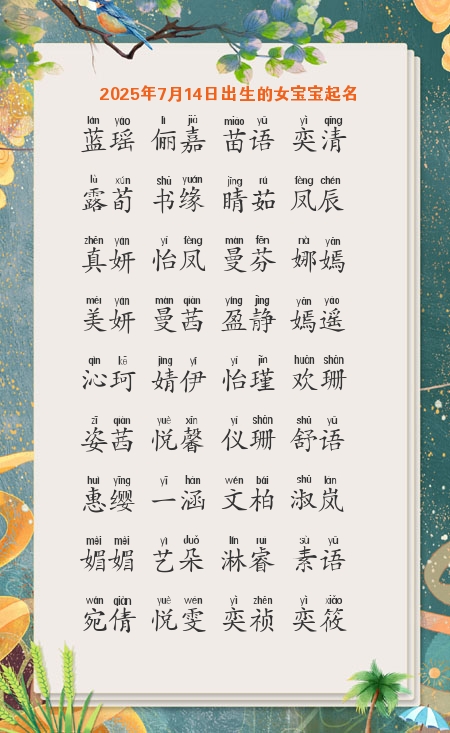 2025年7月14日出生的女宝宝起名
lán yáo lì jiā miáo yǔ yì qīng
蓝瑶 俪嘉 苗语 奕清
lù xún shū yuán jīng rú fèng chén
露荀 书缘 晴茹 凤辰
zhēn yán yí fèng màn fēn nà yān
真妍 怡凤 曼芬 娜嫣
měi yán màn qiàn yíng jìng yān yáo
美妍 曼茜 盈静 嫣遥
qìn kē jīng yī yí jǐn huān shān
沁珂 婧伊 怡瑾 欢珊
zī qiàn yuè xīn yí shān shū yǔ
姿茜 悦馨 仪珊 舒语
huì yīng yī hán wén bǎi shū lán
惠缨 一涵 文柏 淑岚
mèi mèi yì duǒ lín ruì sù yǔ
媚媚 艺朵 淋睿 素语
wǎn qiàn yuè wén yì zhēn yì xiǎo
宛倩 悦雯 奕祯 奕筱